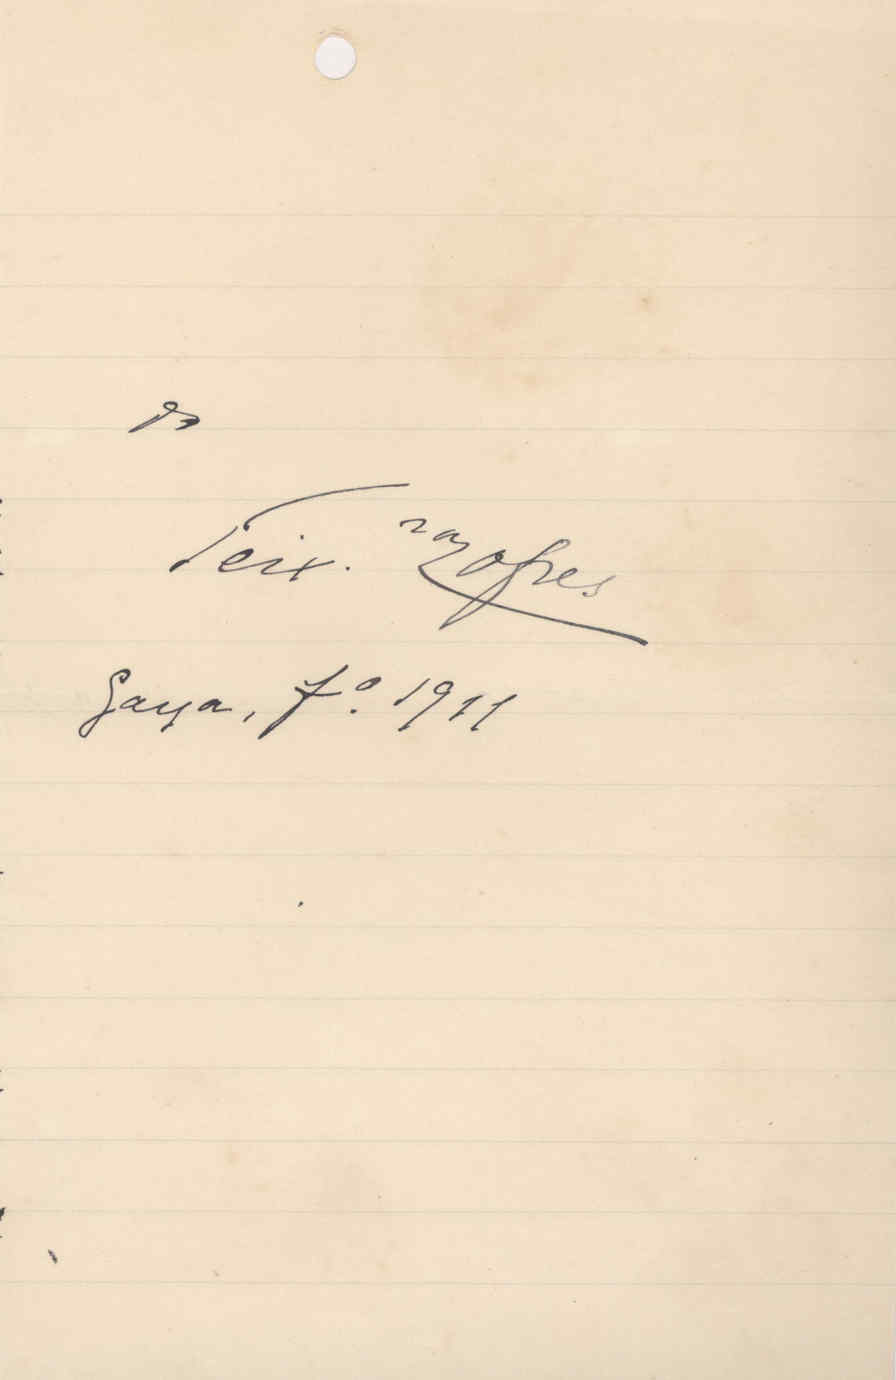 Teix. Lopes
Gaya, fº. 1911